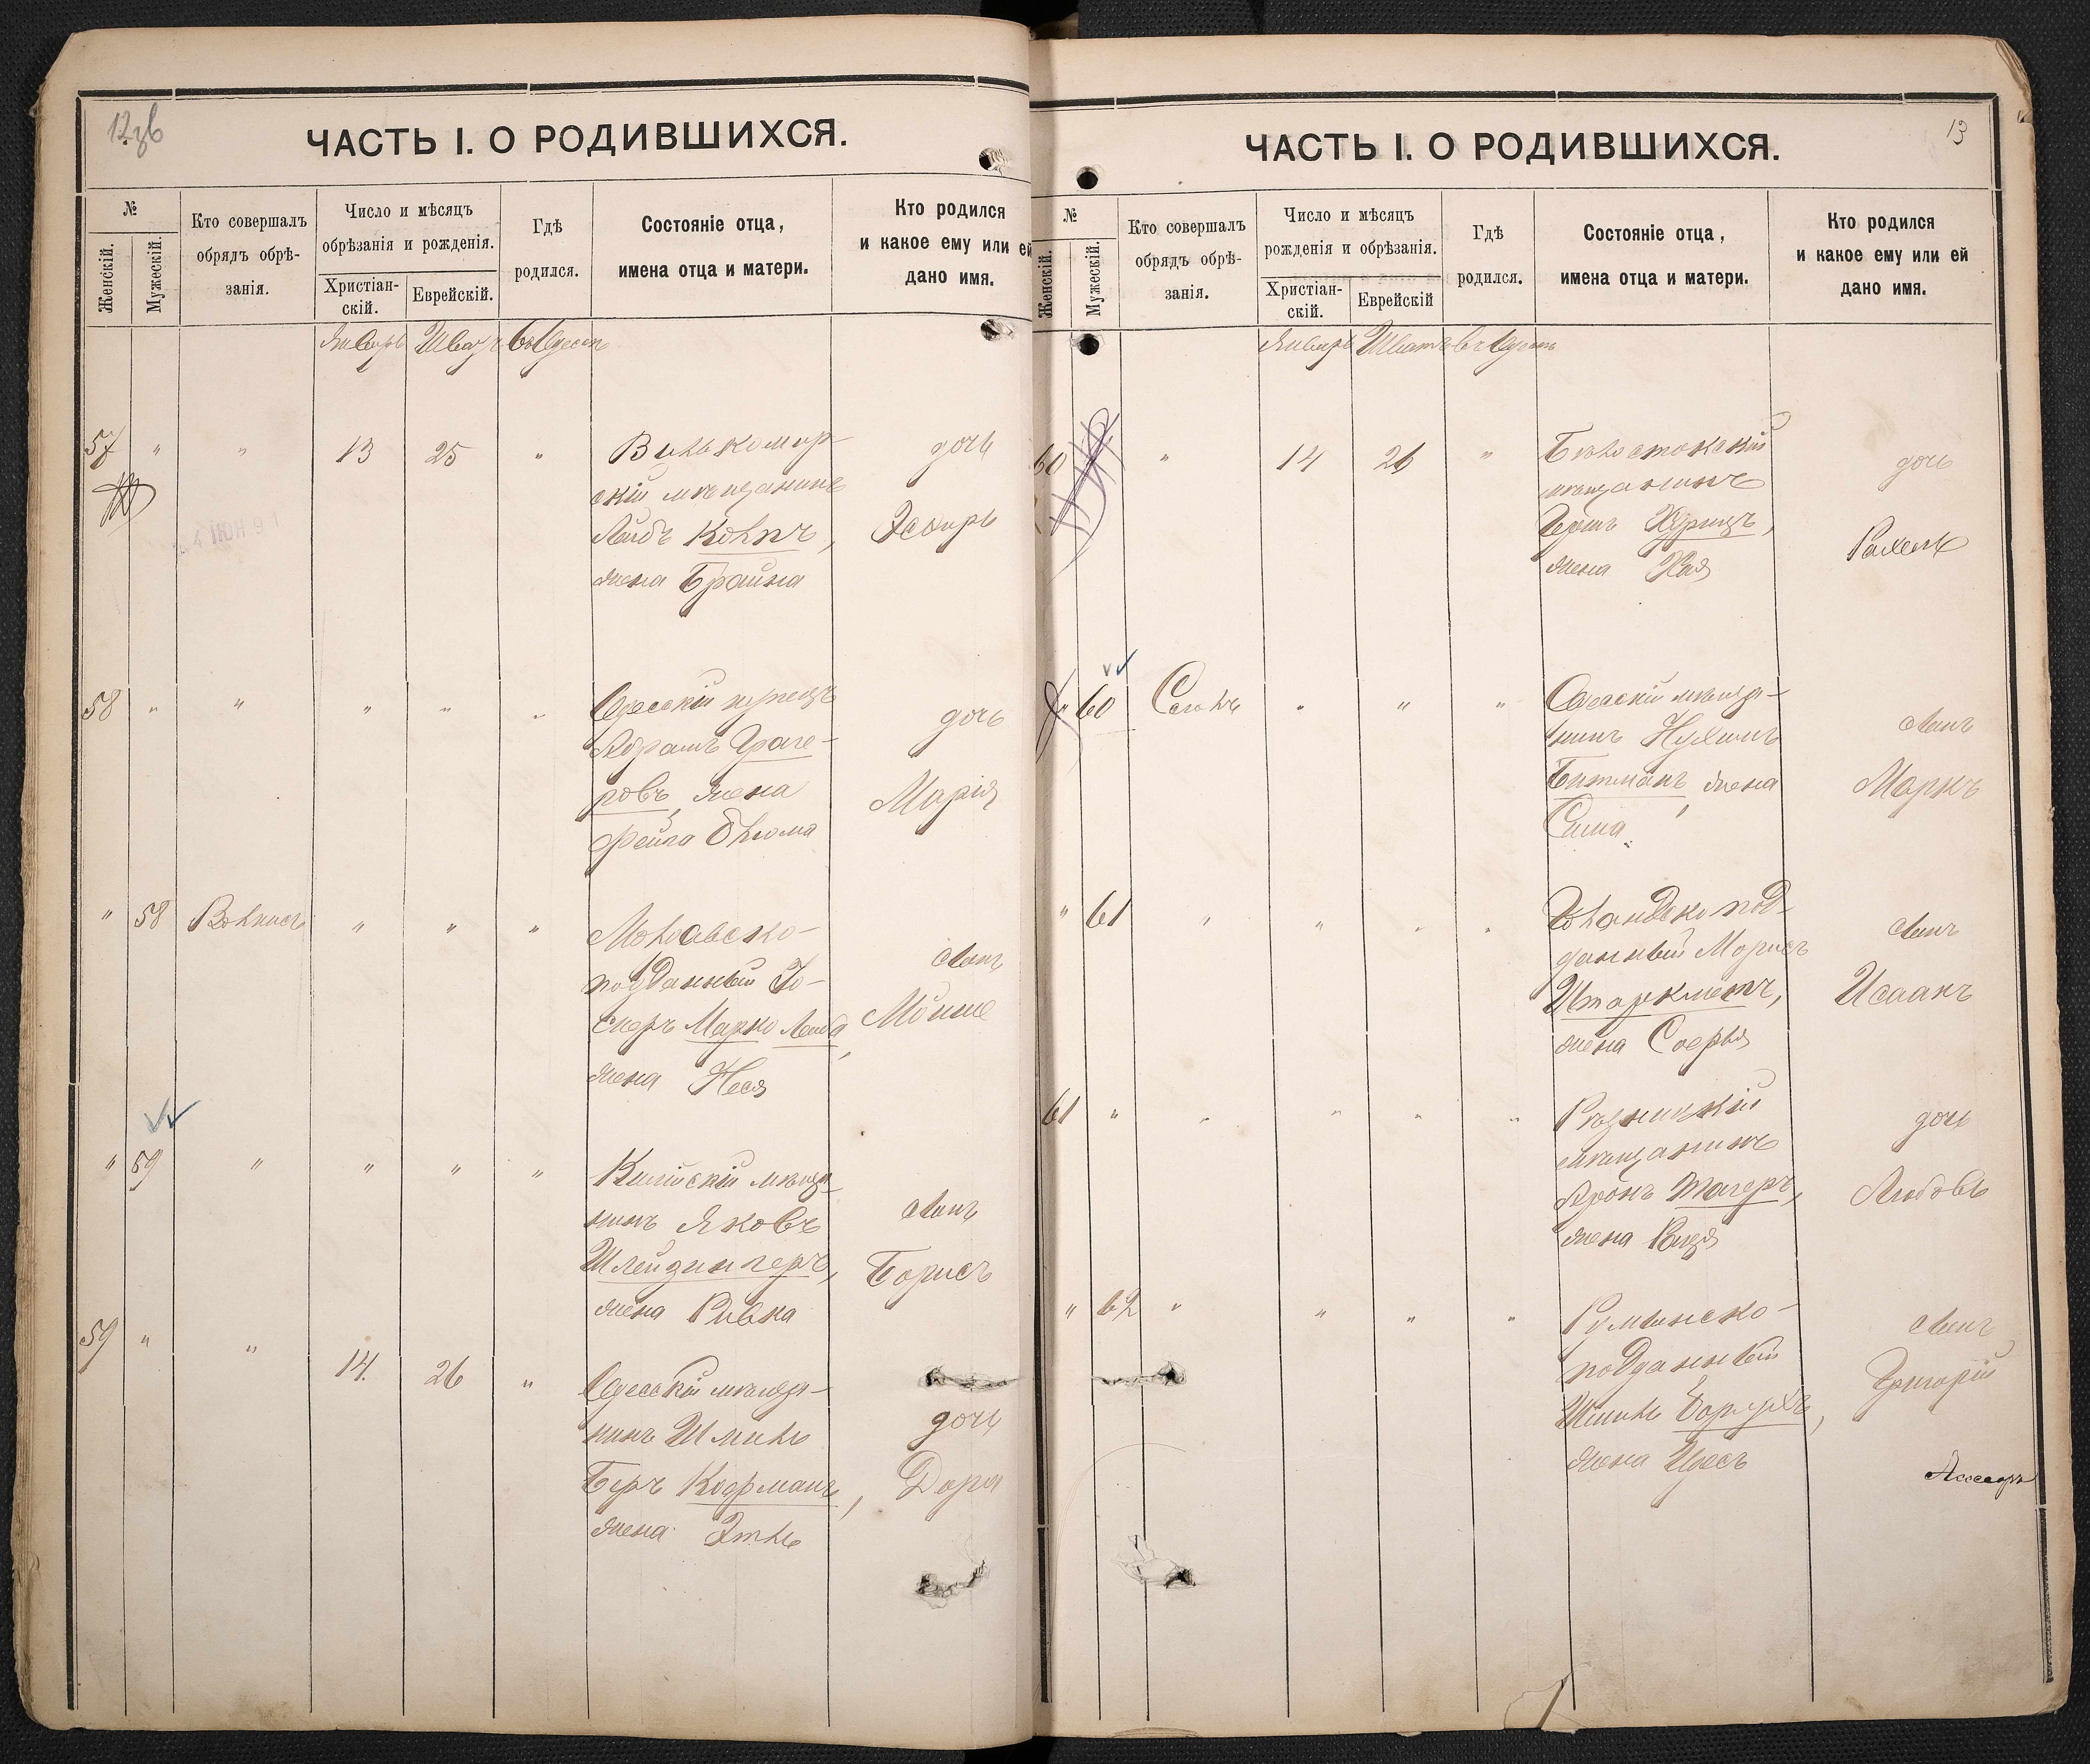 12об
ЧАСТЬ I. О РОДИВШИХСЯ.
№
Женскій.
Мужескій.
Кто совершалъ
обрядъ обрѣ-
занія.
Число и мѣсяцъ
обрѣзанія и рожденія.
Христіан-
скій.
Еврейскій.
Гдѣ
родился.
Состояніе отца,
имена отца и матери.
Кто родился
и какое ему или ей
дано имя.
Январь Шватъ въ Одессѣ
57 " " 13 25 " Вилькомир-
скій мѣщанинъ
Лейбъ Колпъ,
жена Брайна
дочь
Эсѳирь
4 ІЮН 91
58 " " " " " Одесскій купецъ
Абрамъ Граге-
ровъ, жена
Фейга Блюма
дочь
Марія
" 58 Волкисъ " " " Молдавско-
подданный Іо-
Марко Лейба,
жена Неся
сынъ
Мойше
" 59 " " " " Килійскій мѣща-
нинъ Яковъ
Шлейзингеръ,
жена Ривка
сынъ
Борисъ
59 " " 14. 26 " Одесскій мѣща-
нинъ Шмиль
Беръ Кофманъ,
жена Этль
дочь
Дора
13
ЧАСТЬ I. О РОДИВШИХСЯ.
№
Женскій.
Мужескій.
Кто совершалъ
обрядъ обрѣ-
занія.
Число и мѣсяцъ
рожденія и обрѣзанія.
Христіан-
скій.
Еврейскій
Гдѣ
родился.
Состояніе отца,
имена отца и матери.
Кто родился
и какое ему или ей
дано имя.
Январь Шватъ въ Одессѣ
60 " 14 26 " Бѣлостокскій
мѣщанинъ
Гершъ
жена Хая
дочь
Рахель
" 60 Сегалъ " " " Одесскій мѣща-
нинъ Нухимъ
Битманъ, жена
Сима
сынъ
Маркъ
" 61 " " " " Голандско под-
данный Морисъ
Штаркметъ,
жена Софья
сынъ
Исаакъ
61 " " " " "
мѣщанинъ
Аронъ Тагеръ,
жена
дочь
Любовь
" 62 " " " " Румынско-
подданный
Шмиль Борухъ,
жена Идесъ
сынъ
Григорій